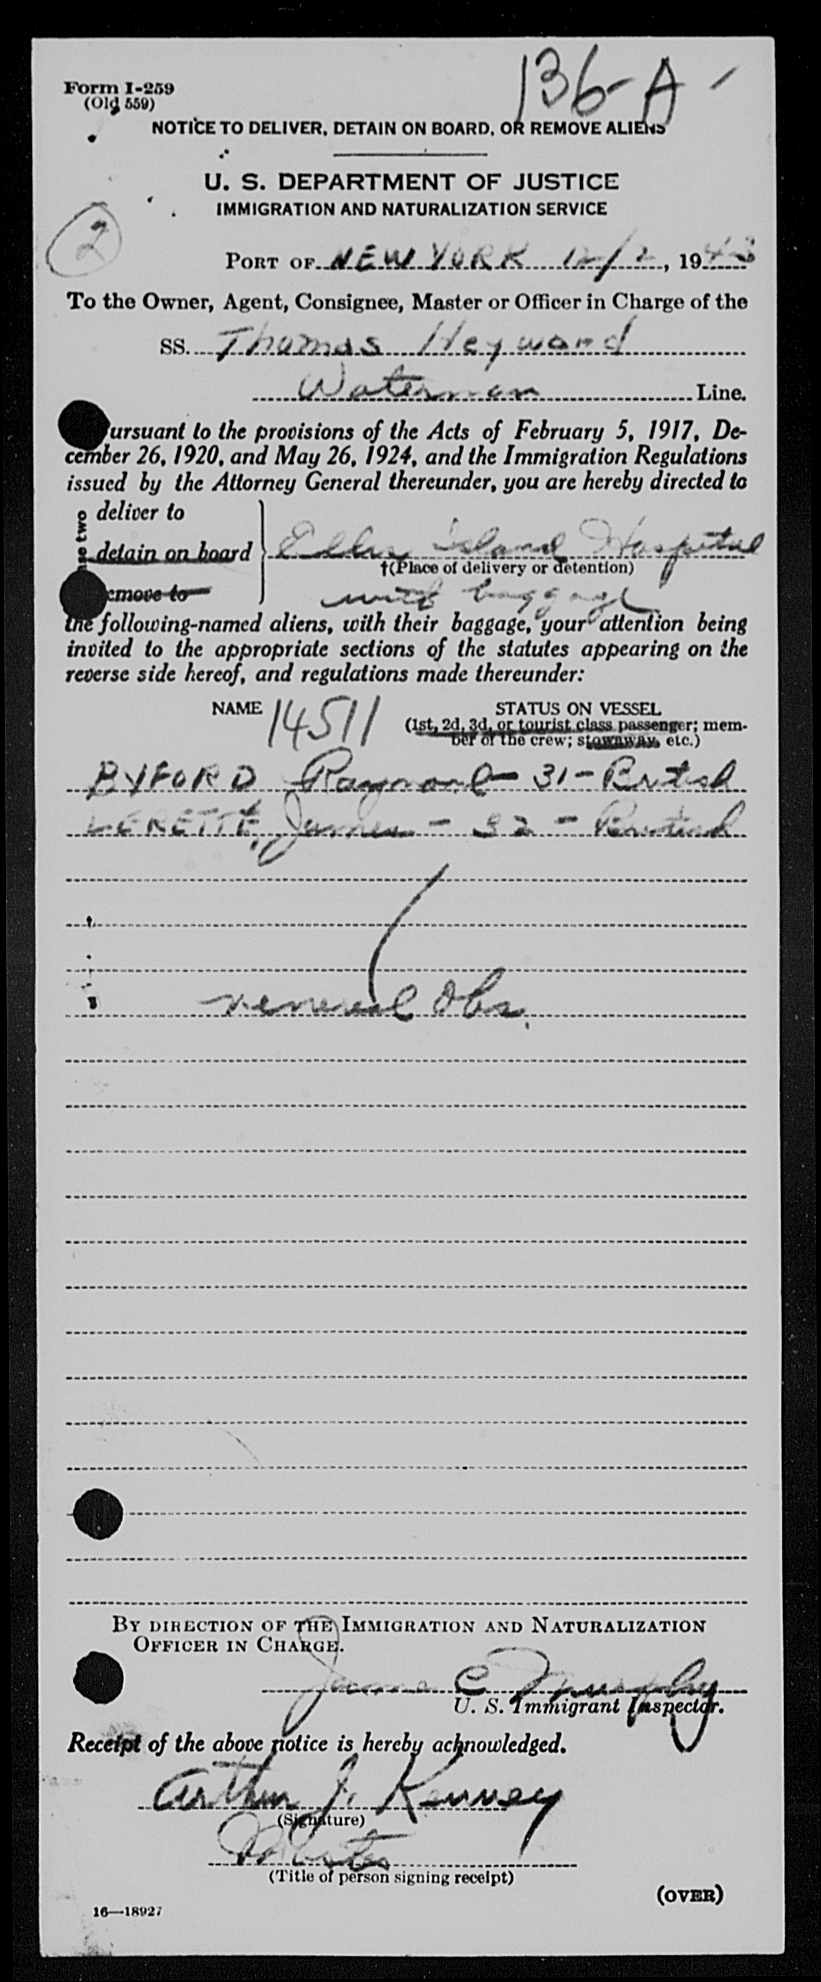 136-A
Form I-259
(Old 559)
NOTICE TO DELIVER, DETAIN ON BOARD, OR REMOVE ALIENS
U. S. DEPARTMENT OF JUSTICE
IMMIGRATION AND NATURALIZATION SERVICE
2
PORT OF NEW YORK 12/2, 1943
To the Owner, Agent, Consignee, Master or Officer in Charge of the
SS. Thomas Heyward
Waterman Line.
ursuant to the provisions of the Acts of February 5, 1917, De-
cember 26, 1920, and May 26, 1924, and the Immigration Regulations
issued by the Attorney General thereunder, you are hereby directed to
deliver to
detain on board Ellis Island Hospital
†(Place of delivery or detention)
emove to with baggage
the following-named aliens, with their baggage, your attention being
invited to the appropriate sections of the statutes appearing on the
reverse side hereof, and regulations made thereunder:
NAME 14511 STATUS ON VESSEL
(1st, 2d, 3d, or tourist class passenger; mem-
ber of the crew; stowaway, etc.)
BYFORD Raymond - 31 - British
LERETTE, James - 32 - British
venereal Obs.
BY DIRECTION OF THE IMMIGRATION AND NATURALIZATION
OFFICER IN CHARGE.
James C Murphy
U. S. Immigrant Inspector.
Receipt of the above notice is hereby acknowledged.
Arthur J. Kenney
(Signature)
Master
(Title of person signing receipt)
(OVER)
16—18927